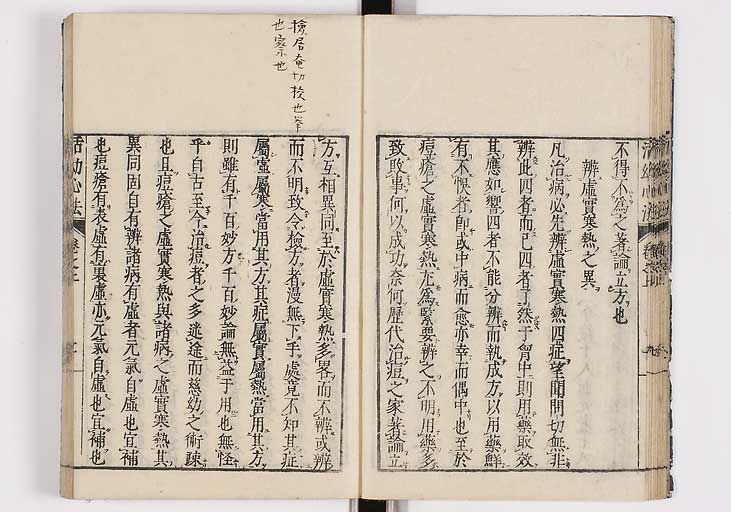 不得不爲之著論立方也
辨虛實寒熱之異
凡治病必先辨虛實寒熱四症望聞問切無非
辨此四者而已四者了然于胷中則用藥取效
其應如響四者不能分辨而執成方以用藥鮮
有不悞者師或中病而愈亦幸而偶中也至於
痘瘡之虛實寒熱尤爲緊要辨之不明用藥多
致敗事何以成功奈何歷代治痘之家著論立
方互相異同至於虛實寒熱多畧而不辨或辨
而不明致令檢方者漫無下手處竟不知其症
屬虛屬寒當用其方其症屬實屬熱當用其方
則雖有千百妙方千百妙論無益于用也無怪
乎自古至今治痘者之多迷途而慈幼之術疎
也且痘瘡之虛實寒熱與諸病之虛實寒熱其
異同固自有辨諸病有虛者元氣自虛也宜補
也痘瘡有表虛有裏虛亦元氣自虛也宜補也
活幼心法
卷之上
檢居奄切校也
也察也